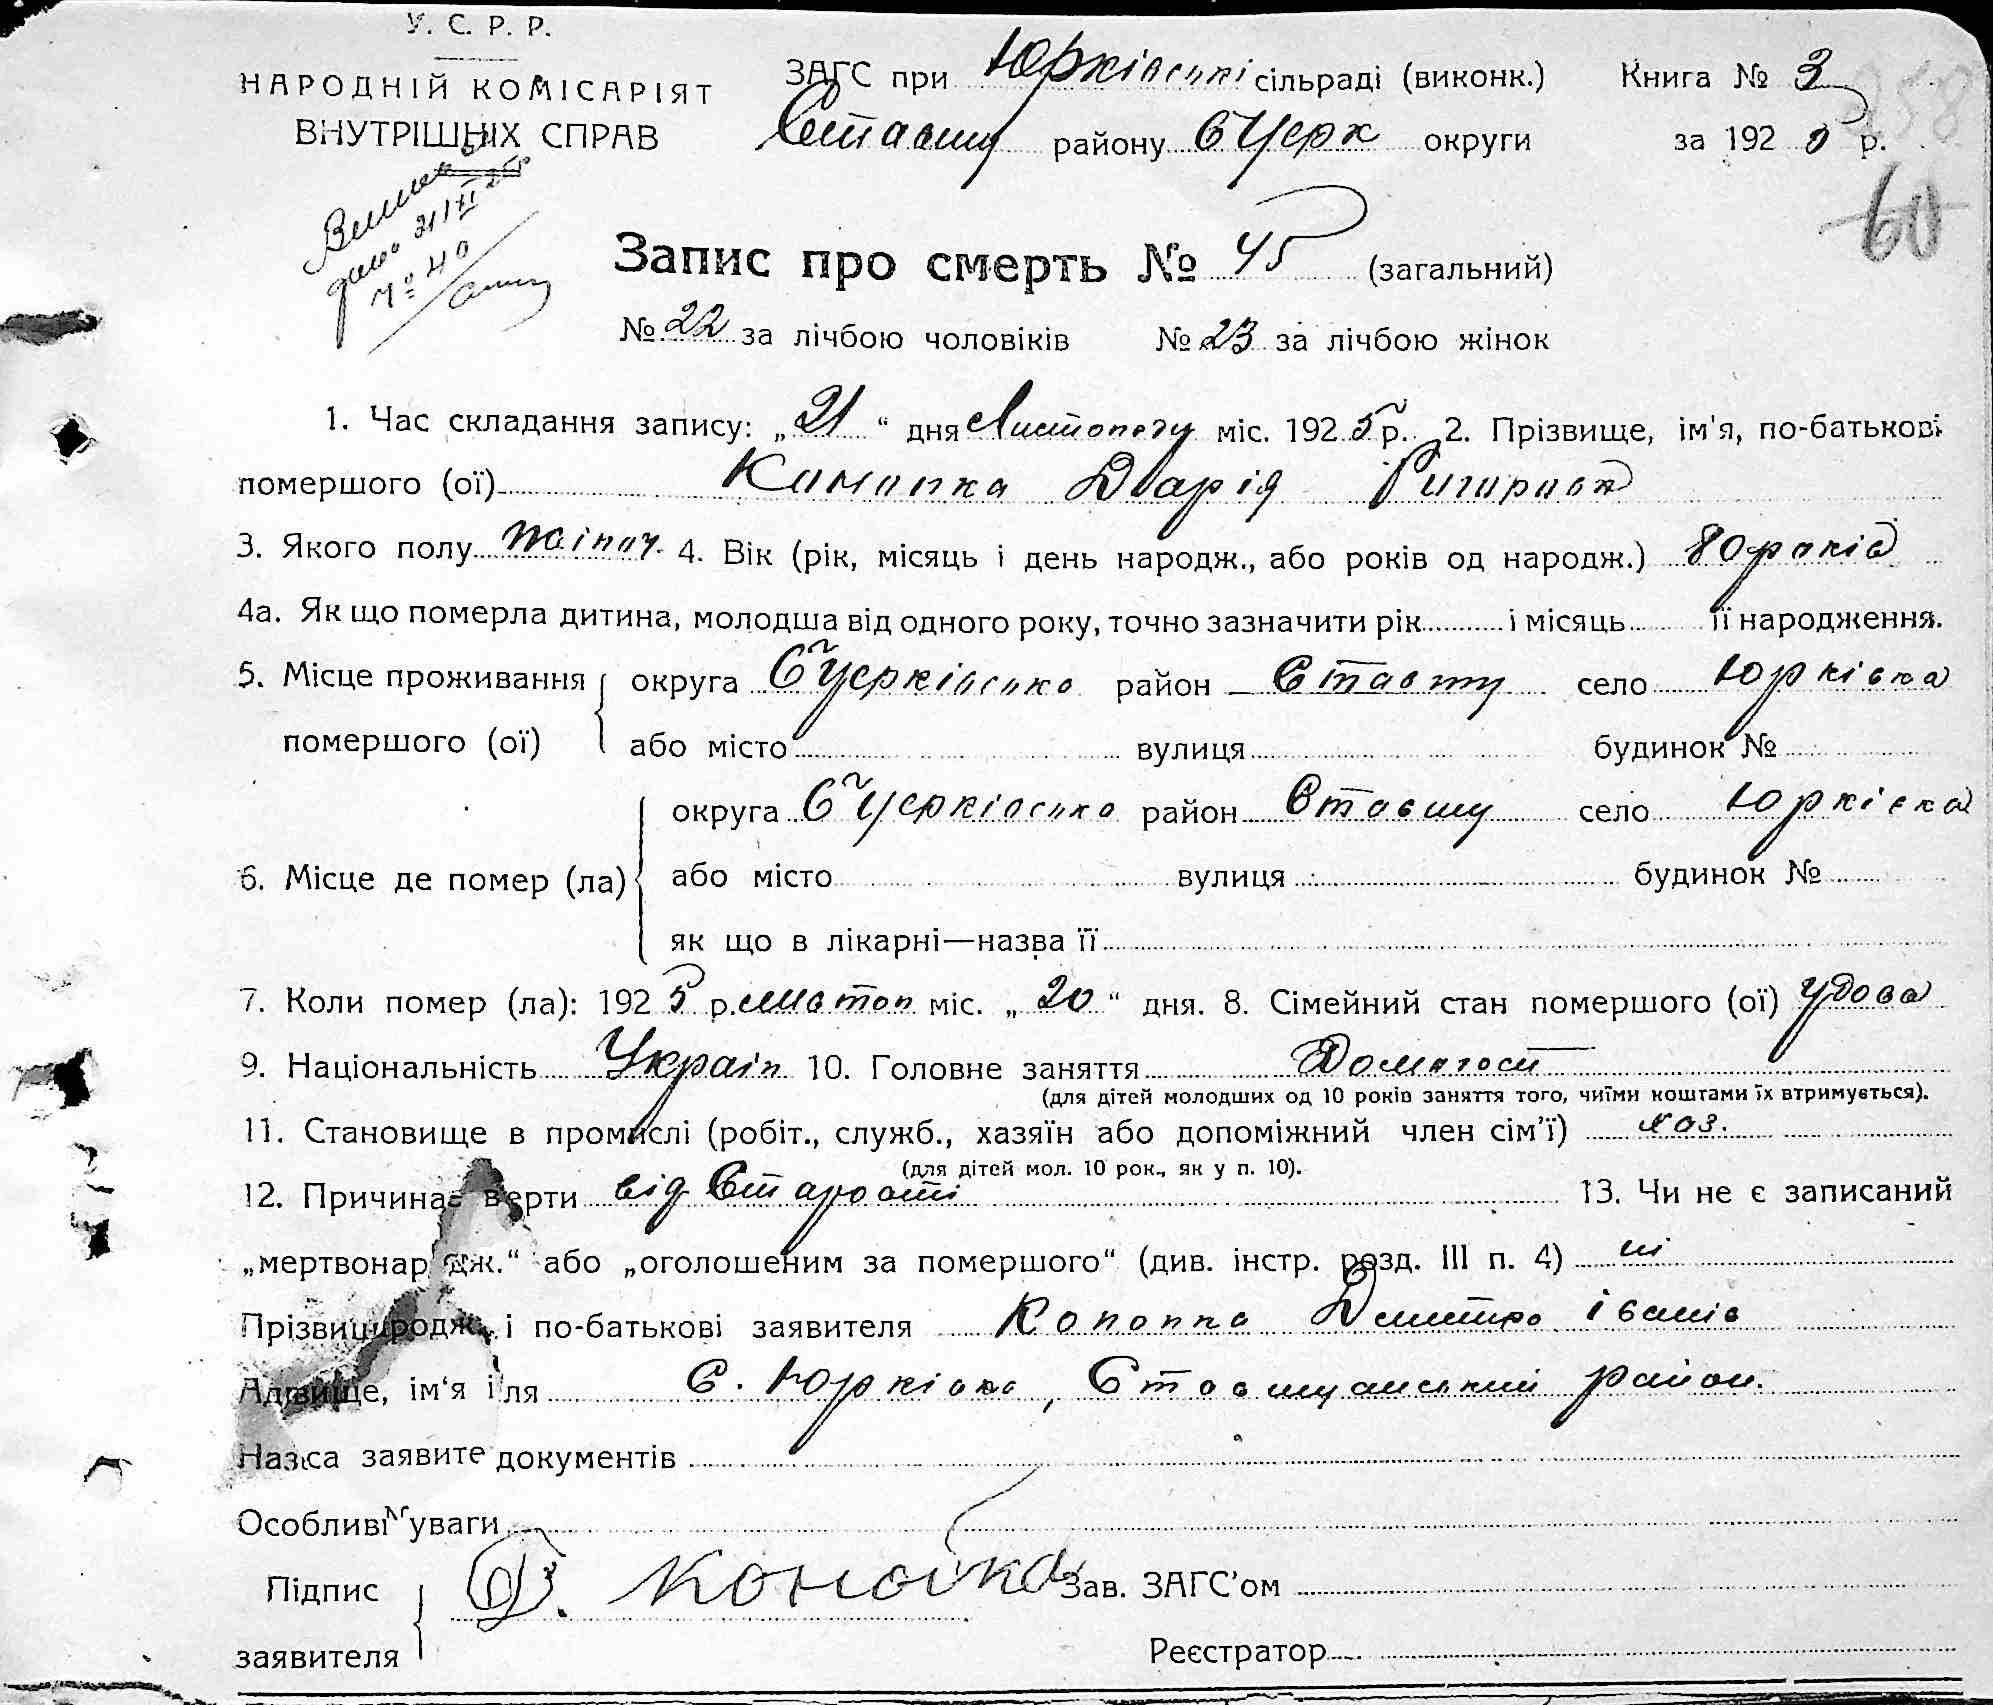 У. С. Р. Р.
НАРОДНІЙ КОМІСАРІЯТ
ВНУТРІШНІХ СПРАВ
ЗАГС при Юрківські сільраді (виконк.) Книга № 3
Ставищ району БЦерк округи за 192 р.
60
№ 40
Запис про смерть № 45 (загальний)
№ 22 за лічбою чоловіків № 23 за лічбою жінок
1. Час складання запису: „21“ дня Листопаду міс. 1925 р. 2. Прізвище, ім'я, по-батькові
помершого (ої) Дарія
3. Якого полу жіноч. 4. Вік (рік, місяць і день народж., або років од народж.) 80 років
4а. Як що померла дитина, молодша від одного року, точно зазначити рік і місяць її народження.
5. Місце проживання округа БЦерківсько район Ставищ село Юрківка
помершого (ої) або місто вулиця будинок №
округа БЦерківсько район Ставищ село Юрківка
6. Місце де помер (ла) або місто вулиця будинок №
як що в лікарні—назва її
7. Коли помер (ла): 1925 р. листоп міс. „20“ дня. 8. Сімейний стан помершого (ої) удова
9. Національність Україн 10. Головне заняття Домагосп
(для дітей молодших од 10 років заняття того, чиїми коштами їх втримується).
11. Становище в промислі (робіт., служб., хазяїн або допоміжний член сім'ї) хоз.
(для дітей мол. 10 рок., як у п. 10).
12. Причина верти від старости 13. Чи не є записаний
„мертвонар дж.“ або „оголошеним за помершого“ (див. інстр. розд. III п. 4) ні
родж. і по-батькові заявителя Конопка Дмитро Іванів
ім'я і ля С. Юрківка, Ставищанський район.
заявите документів
Особливі уваги
Підпис Д. Конопка Зав. ЗАГС'ом
заявителя Реєстратор